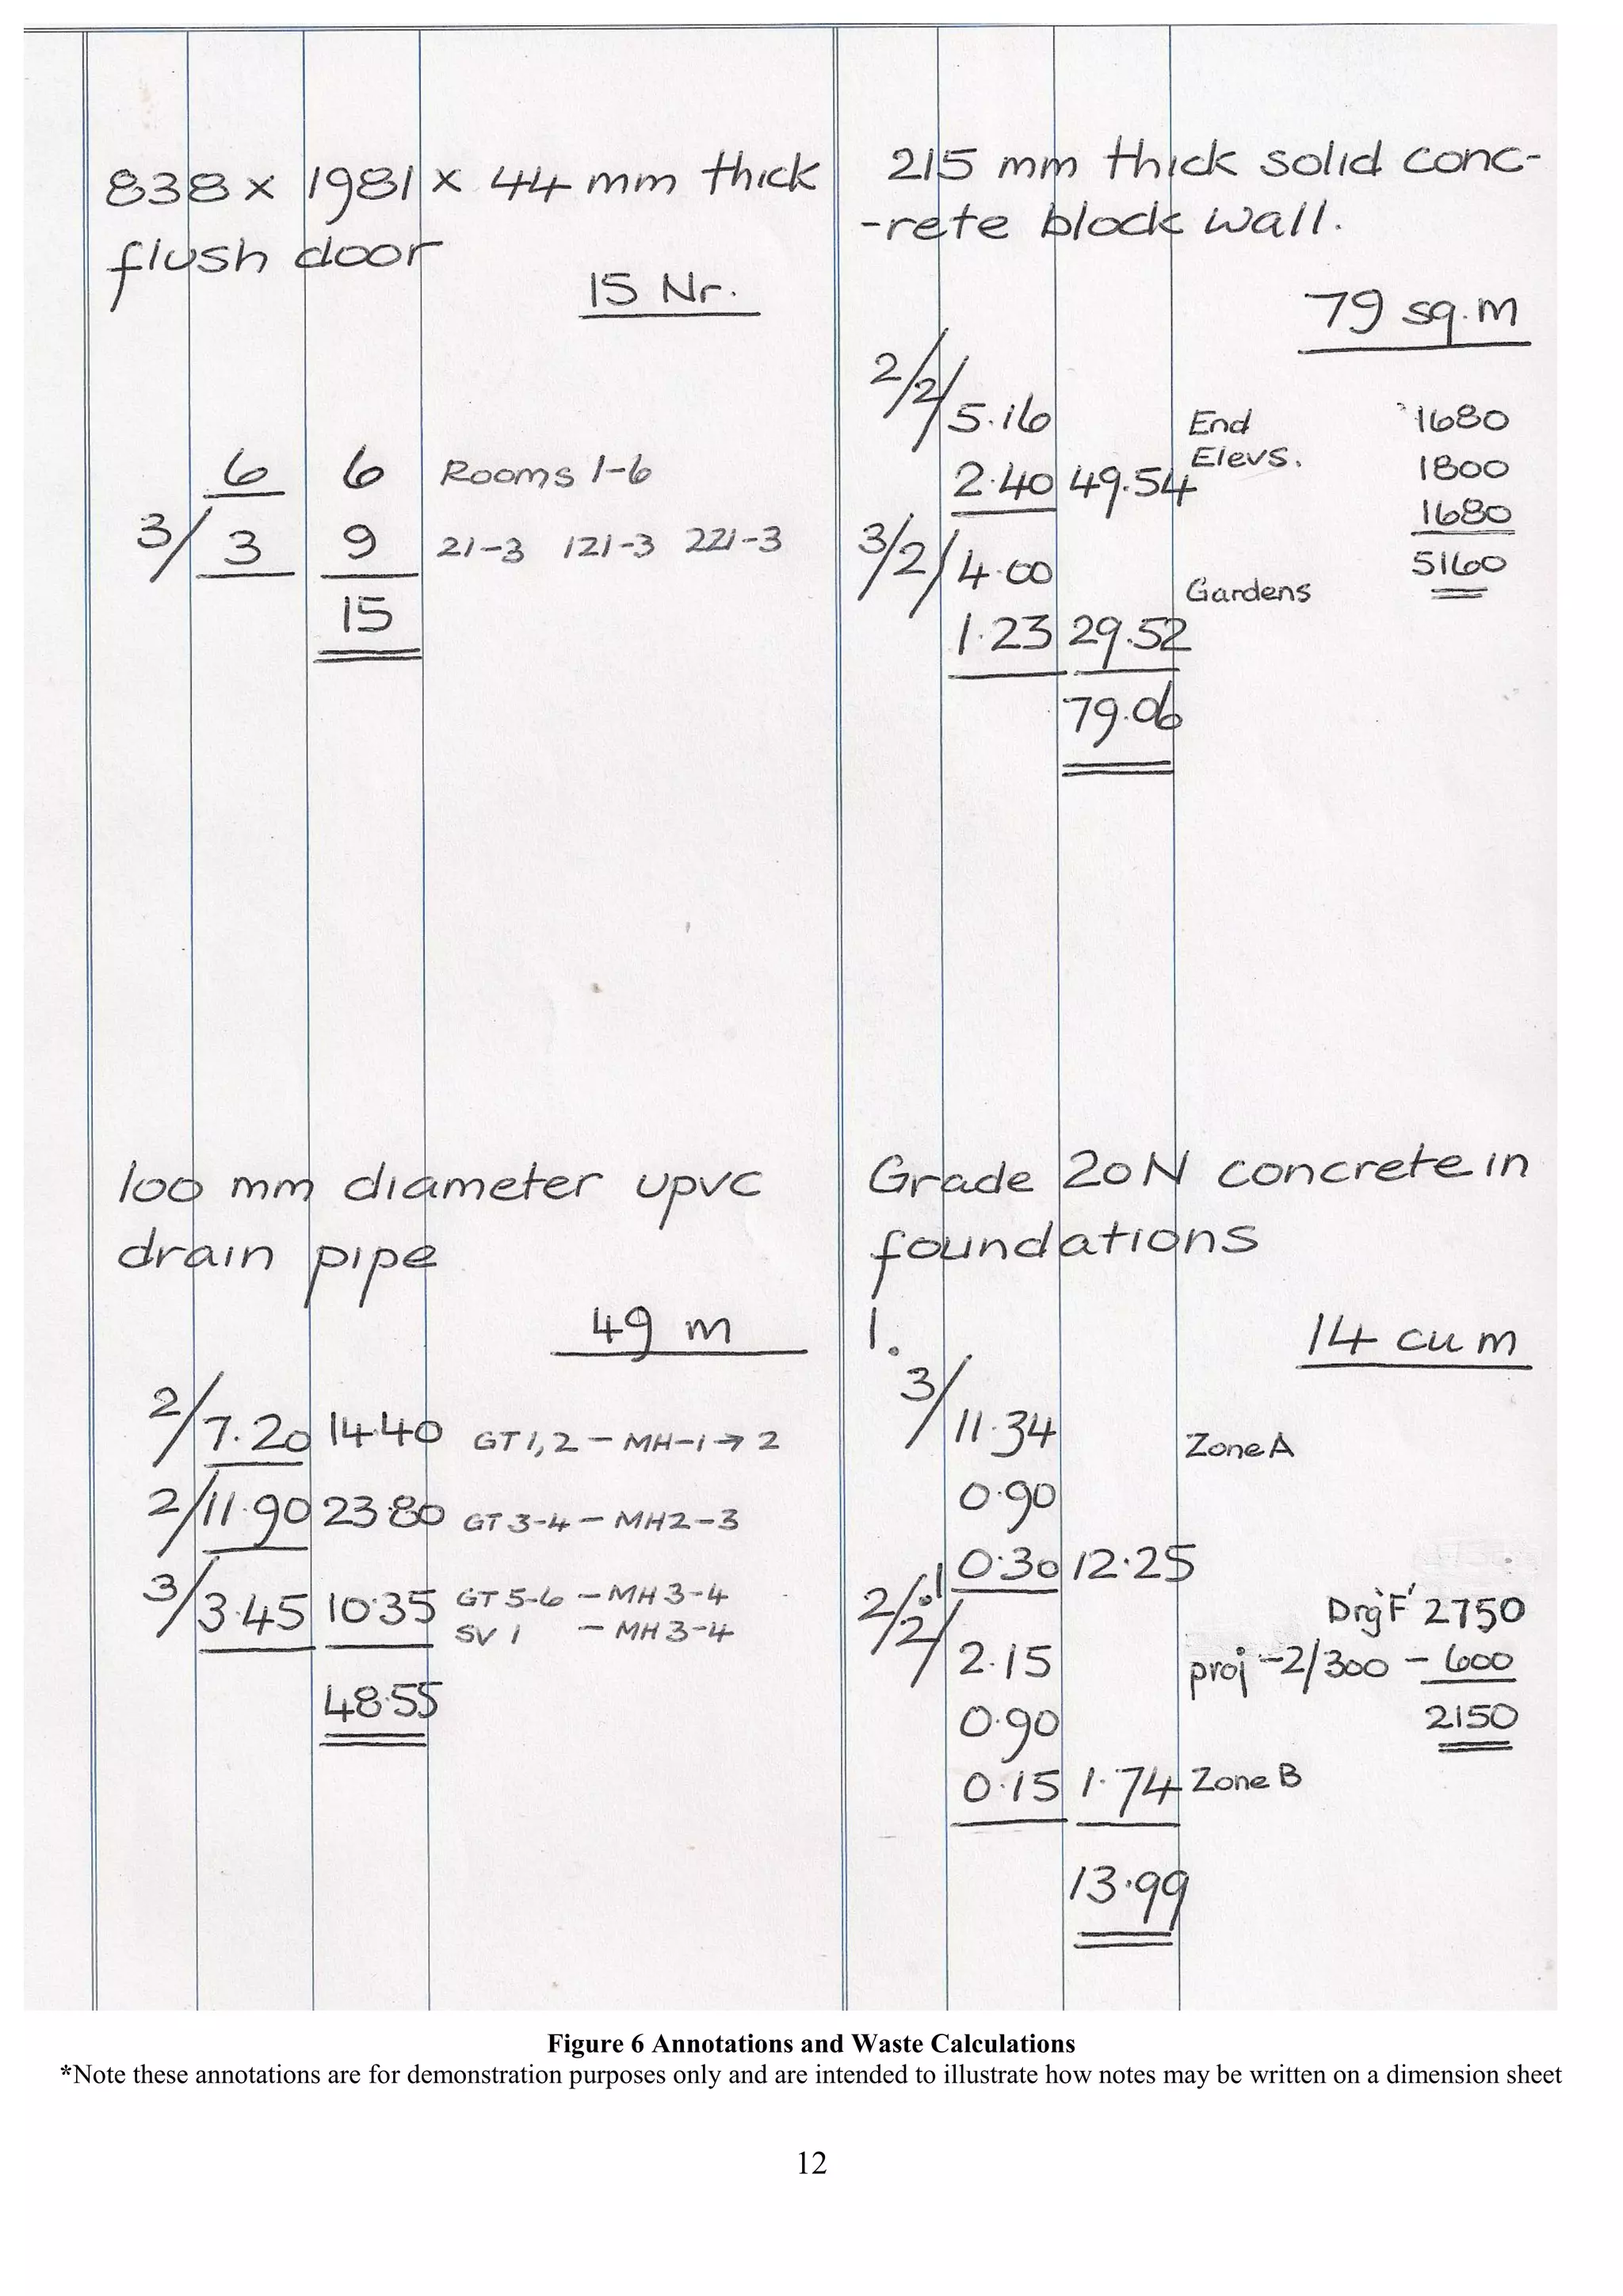 838 x 1981 x 44 mm thick
flush door
15 Nr.
6 6 Rooms 1-6
3/ 3 9 21-3 121-3 221-3
15
215 mm thick solid conc-
-rete block wall.
79 sq.m
2/2/ 5.16 End 1680
Elevs. 1800
2.40 49.54
1680
3/2/ 4.00 5160
Gardens
1.23 29.52
79.06
100 mm diameter upvc
drain pipe
49 m
2/ 7.20 14.40 GT 1,2 - MH-1→2
2/ 11.90 23.80 GT 3-4 - MH2-3
3/ 3.45 10.35 GT 5-6 - MH 3-4
SV 1 - MH 3-4
48.55
Grade 20N concrete in
foundations
1.
14 cu m
3/ 11.34 Zone A
0.90
0.30 12.25
2/.1/2/ 2.15 Drg'F' 2750
proj -2/300 - 600
0.90 2150
0.15 1.74 Zone B
13.99
Figure 6 Annotations and Waste Calculations
*Note these annotations are for demonstration purposes only and are intended to illustrate how notes may be written on a dimension sheet
12